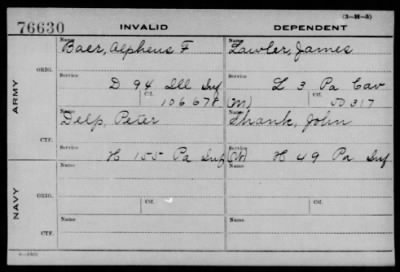 (3—M—5)
76630 INVALID DEPENDENT
Name Baer, Alpheus F Name Lawler, James
ARMY
ORIG.
Service D 94 Ill Inf Service L 3 Pa Cav
Ctf. 106678 (M) Ctf. 317
Name Delp, Peter Name Shank, John
CTF.
Service H 155 Pa Inf Service H 49 Pa Inf
NAVY
Name Name
ORIG.
Service Ctf. Service Ctf.
Name Name
CTF.
Service Service